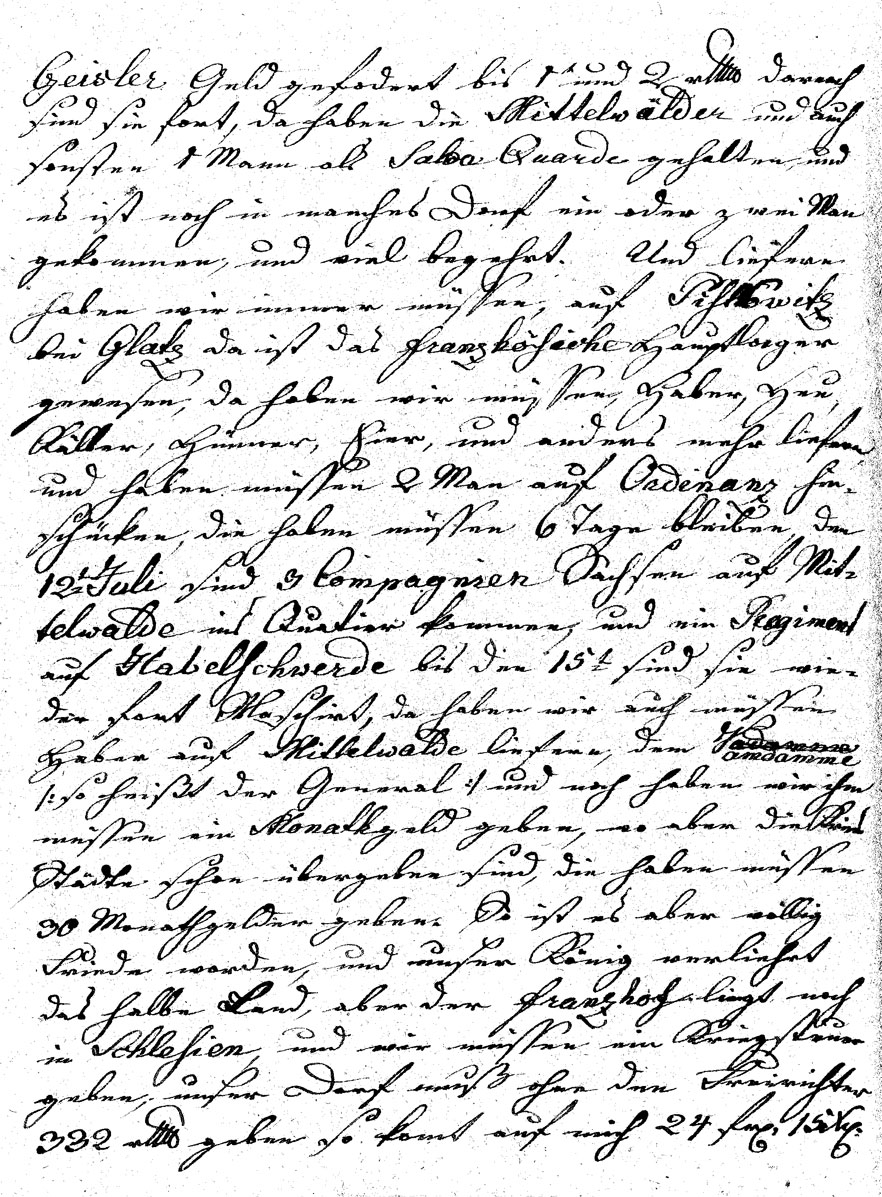 Geisler Geld gefodert bis 1 und 2 darnach
sind sie fort, da haben die Mittelwälder und auch
sonsten 1 Mann als Salva Quarde gehalten, und
es ist noch in manches Dorf ein oder zwei Man
gekommen, und viel begehrt. Und liefern
haben wir immer müssen, auf Pischkowitz
bei Glatz da ist das franzhösische Hauptlager
gewesen, da haben wir müssen, Haber, Heu,
Kälber, Hünner, Eier, und anders mehr liefern
und haben müssen 2 Man auf Ordinanz hin-
schücken, die haben müssen 6 Tage bleiben, den
12t Juli sind 3 Compagnien Sachsen auf Mit-
telwalde ins Quatier kommen, und ein Regiment
auf Habelschwerde bis den 15t sind sie wie-
der fort Maschirt, da haben wir auch müssen
Haber auf Mittelwalde liefern, dem Vandamme
/: so heißt der General :/ und noch haben wir ihm
müssen ein Monathgeld geben, wo aber die
Städte schon übergeben sind, die haben müssen
30 Monathgelder geben. So ist es aber völlig
Friede worden, und unser König verliehrt
das halbe Land, aber der franzhos liegt noch
in Schlesien, und wir müssen ein Kriegssteuer
geben, unser Dorf muß ohne den Freirichter
332 geben so komt auf mich 24 15